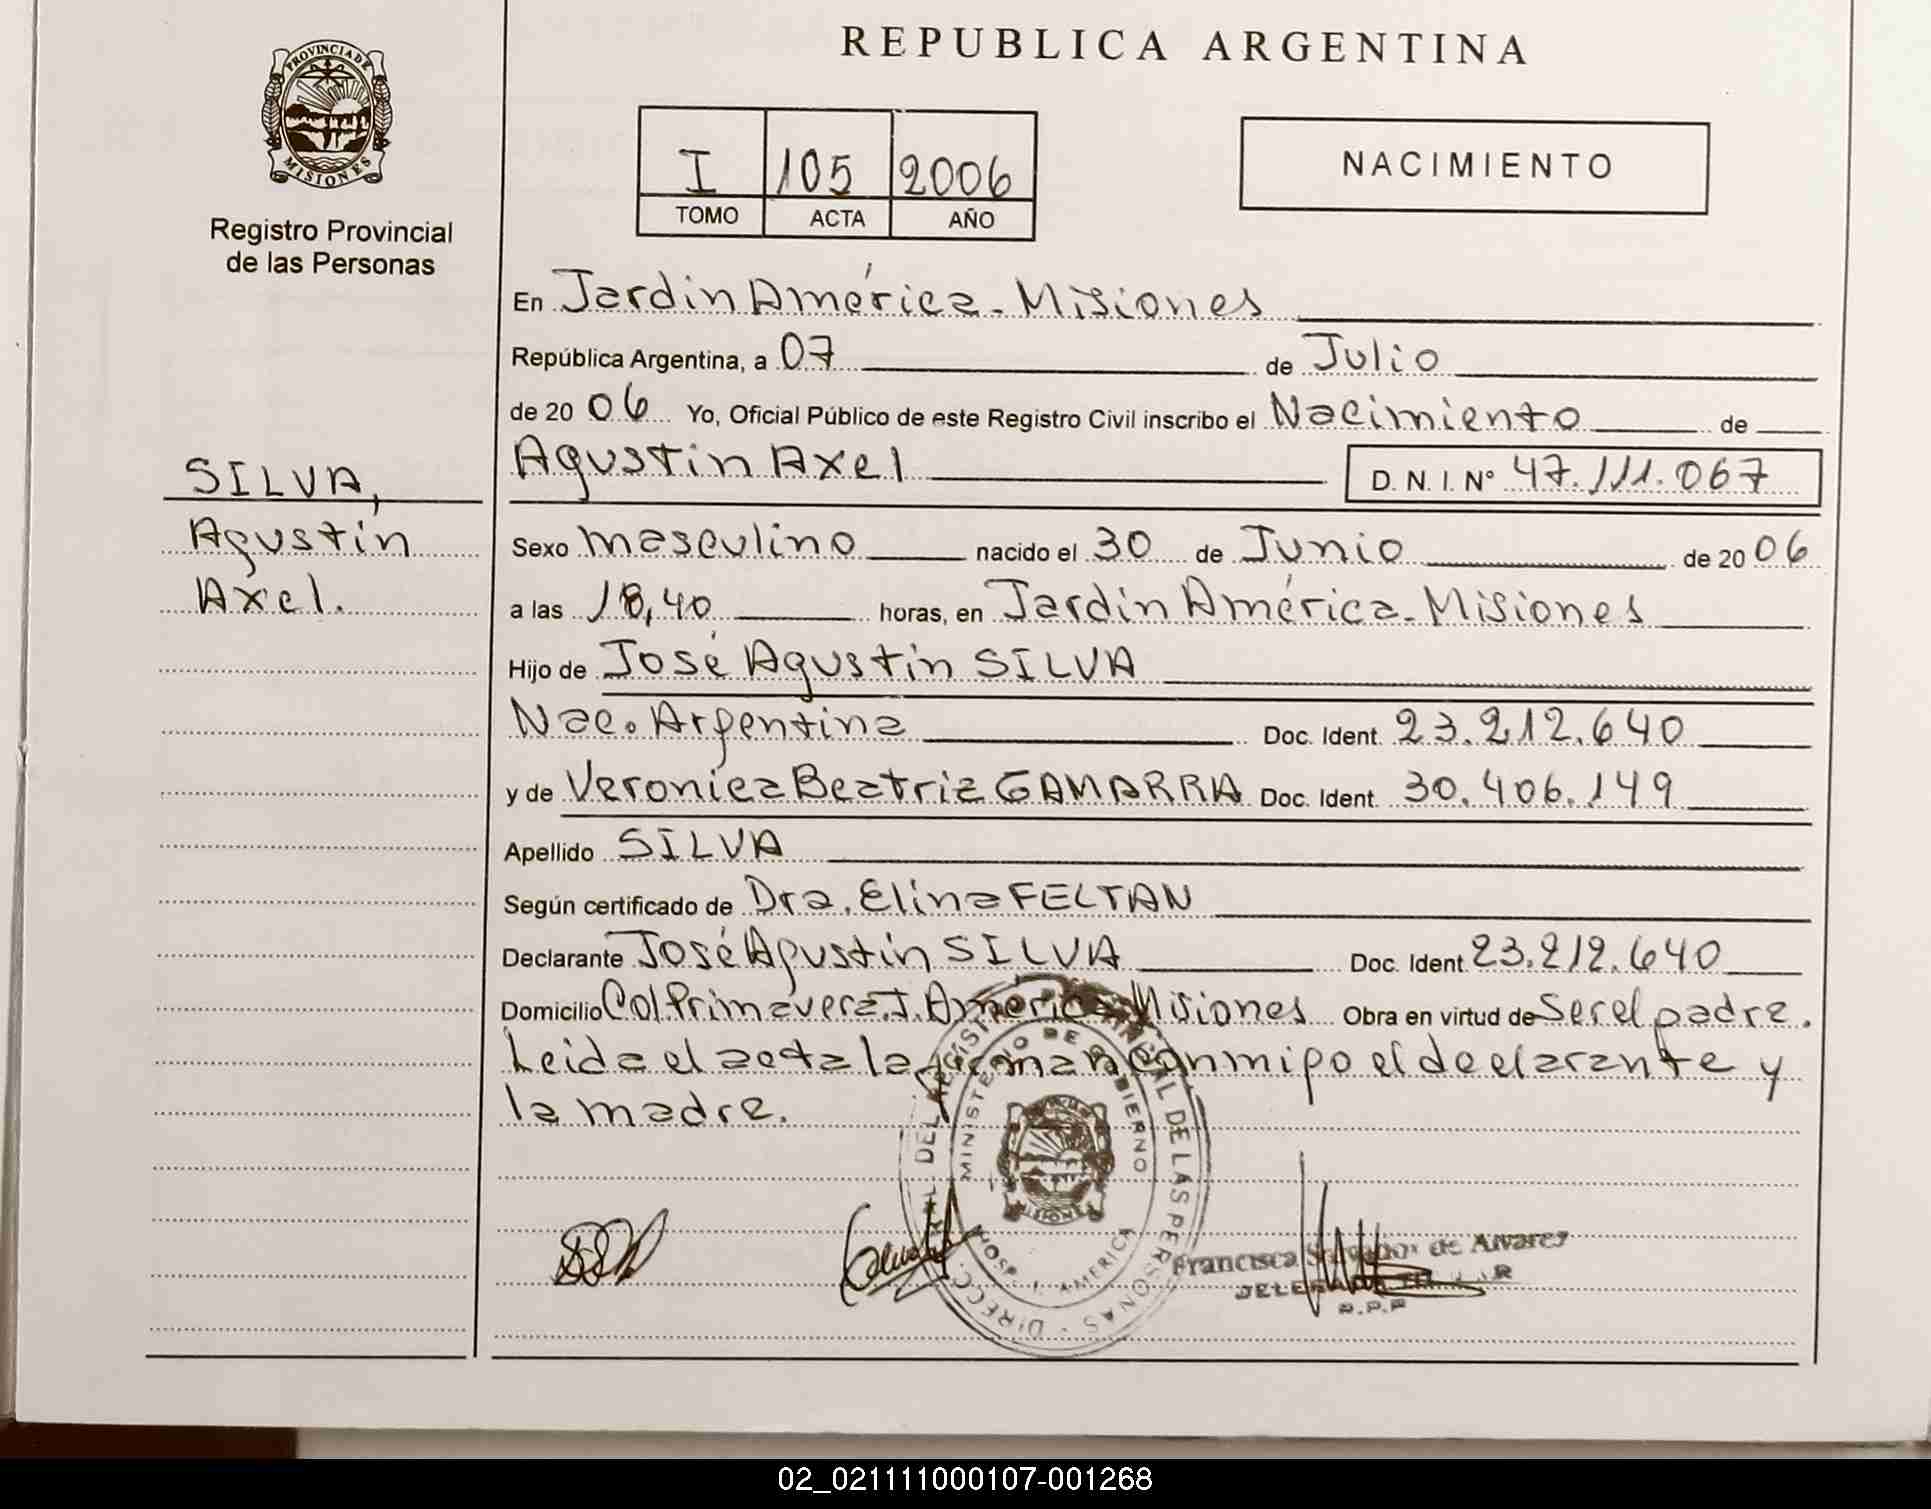 REPUBLICA ARGENTINA
PROVINCIA DE
MISIONES
Registro Provincial
de las Personas
I 105 2006
TOMO ACTA AÑO
NACIMIENTO
En Jardin América - Misiones
República Argentina, a 07 de Julio
de 20 06 Yo, Oficial Público de este Registro Civil inscribo el Nacimiento de
Agustin Axel D. N. I. Nº 47.111.067
SILVA,
Agustín
Axel.
Sexo masculino nacido el 30 de Junio de 20 06
a las 18,40 horas, en Jardin América - Misiones
Hijo de José Agustin SILVA
Nac. Argentina Doc. Ident. 23.212.640
y de Veronica Beatriz GAMARRA Doc. Ident. 30.406.149
Apellido SILVA
Según certificado de Dra. Elina FELTAN
Declarante José Agustin SILVA Doc. Ident. 23.212.640
Domicilio Col. Primavera. J. América Misiones Obra en virtud de Ser el padre.
Leida el acta la firman conmigo el declarante y
la madre.
DIRECC. GRAL. DEL REGISTRO PROVINCIAL DE LAS PERSONAS -
MINISTERIO DE GOBIERNO
HOSP. J. AMERICA
MISIONES
Francisca de Alvarez
R.P.P
02_021111000107-001268